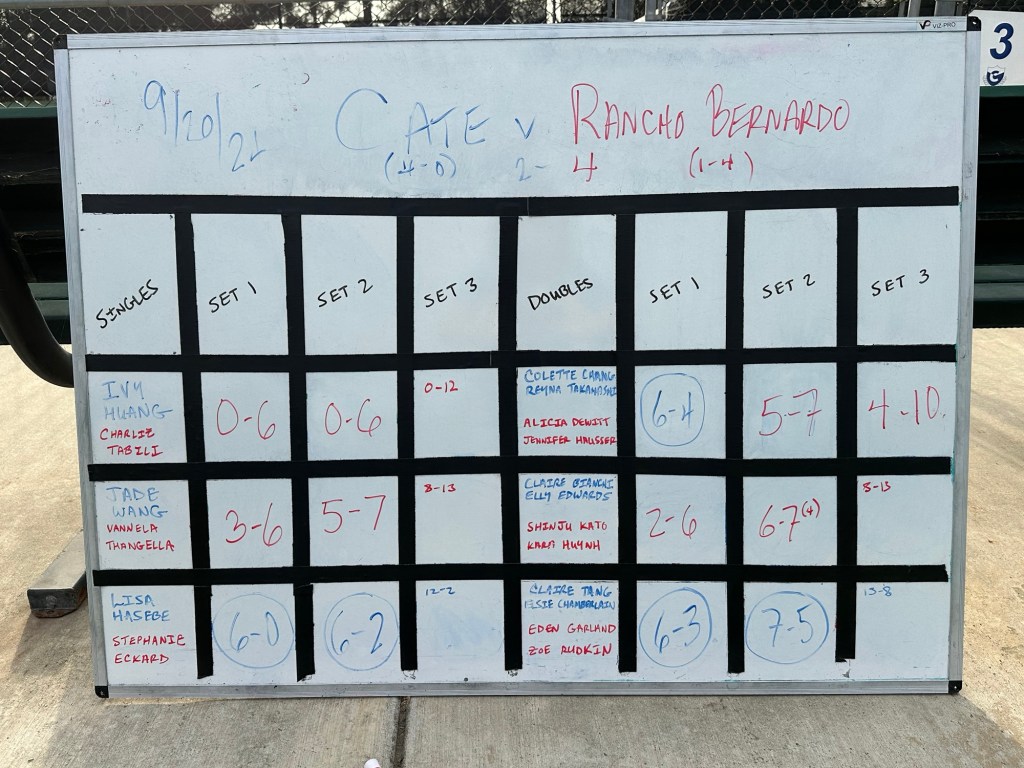 VIZ-PRO
3
9/20/21 CATE v RANCHO BERNARDO
(4-0) 2- 4 (1-4)
SINGLES SET 1 SET 2 SET 3 DOUBLES SET 1 SET 2 SET 3
IVY
HUANG
CHARLIE
TABILI
0-6 0-6 0-12
COLETTE CHANG
REYNA TAKAHASHI
ALICIA DEWITT
JENNIFER HAUSSER
6-4 5-7 4-10
JADE
WANG
VANNELA
THANGELLA
3-6 5-7 8-13
CLAIRE BIANCHI
ELLY EDWARDS
SHINJU KATO
HUYNH
2-6 6-7(4) 8-13
LISA
HASEBE
STEPHANIE
ECKARD
6-0 6-2 12-2
CLAIRE TANG
ELSIE CHAMBERLAIN
EDEN GARLAND
ZOE RUDKIN
6-3 7-5 13-8